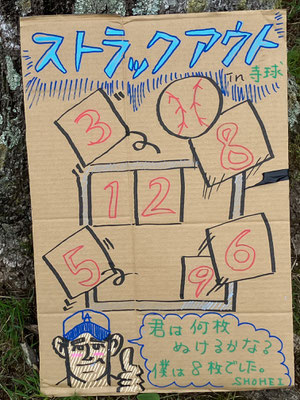 ストラックアウト
in 寺球
3
8
1 2
5
9
6
A
君は何枚
ぬけるかな?
僕は8枚でした。
SHOHEI